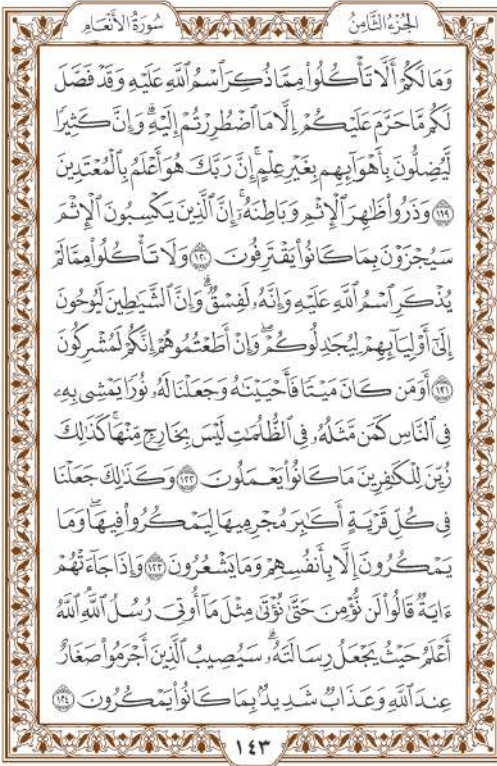 الجُزْءُ الثَّامِنُ سُورَةُ الأَنْعَامِ
وَمَا لَكُمْ أَلَّا تَأْكُلُوا۟ مِمَّا ذُكِرَ ٱسْمُ ٱللَّهِ عَلَيْهِ وَقَدْ فَصَّلَ
لَكُم مَّا حَرَّمَ عَلَيْكُمْ إِلَّا مَا ٱضْطُرِرْتُمْ إِلَيْهِ ۗ وَإِنَّ كَثِيرًا
لَّيُضِلُّونَ بِأَهْوَآئِهِم بِغَيْرِ عِلْمٍ ۗ إِنَّ رَبَّكَ هُوَ أَعْلَمُ بِٱلْمُعْتَدِينَ
١١٩ وَذَرُوا۟ ظَٰهِرَ ٱلْإِثْمِ وَبَاطِنَهُۥٓ ۚ إِنَّ ٱلَّذِينَ يَكْسِبُونَ ٱلْإِثْمَ
سَيُجْزَوْنَ بِمَا كَانُوا۟ يَقْتَرِفُونَ ١٢٠ وَلَا تَأْكُلُوا۟ مِمَّا لَمْ
يُذْكَرِ ٱسْمُ ٱللَّهِ عَلَيْهِ وَإِنَّهُۥ لَفِسْقٌ ۗ وَإِنَّ ٱلشَّيَٰطِينَ لَيُوحُونَ
إِلَىٰٓ أَوْلِيَآئِهِمْ لِيُجَٰدِلُوكُمْ ۖ وَإِنْ أَطَعْتُمُوهُمْ إِنَّكُمْ لَمُشْرِكُونَ
١٢١ أَوَمَن كَانَ مَيْتًا فَأَحْيَيْنَٰهُ وَجَعَلْنَا لَهُۥ نُورًا يَمْشِى بِهِۦ
فِى ٱلنَّاسِ كَمَن مَّثَلُهُۥ فِى ٱلظُّلُمَٰتِ لَيْسَ بِخَارِجٍ مِّنْهَا ۚ كَذَٰلِكَ
زُيِّنَ لِلْكَٰفِرِينَ مَا كَانُوا۟ يَعْمَلُونَ ١٢٢ وَكَذَٰلِكَ جَعَلْنَا
فِى كُلِّ قَرْيَةٍ أَكَٰبِرَ مُجْرِمِيهَا لِيَمْكُرُوا۟ فِيهَا ۖ وَمَا
يَمْكُرُونَ إِلَّا بِأَنفُسِهِمْ وَمَا يَشْعُرُونَ ١٢٣ وَإِذَا جَآءَتْهُمْ
ءَايَةٌ قَالُوا۟ لَن نُّؤْمِنَ حَتَّىٰ نُؤْتَىٰ مِثْلَ مَآ أُوتِىَ رُسُلُ ٱللَّهِ ۘ ٱللَّهُ
أَعْلَمُ حَيْثُ يَجْعَلُ رِسَالَتَهُۥ ۗ سَيُصِيبُ ٱلَّذِينَ أَجْرَمُوا۟ صَغَارٌ
عِندَ ٱللَّهِ وَعَذَابٌ شَدِيدٌۢ بِمَا كَانُوا۟ يَمْكُرُونَ ١٢٤
١٤٣